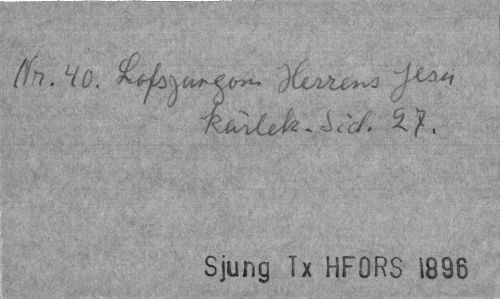 Nr. 40. Lofsjungom Herrens Jesu
kärlek. Sid. 27.
Sjung Tx HFORS 1896